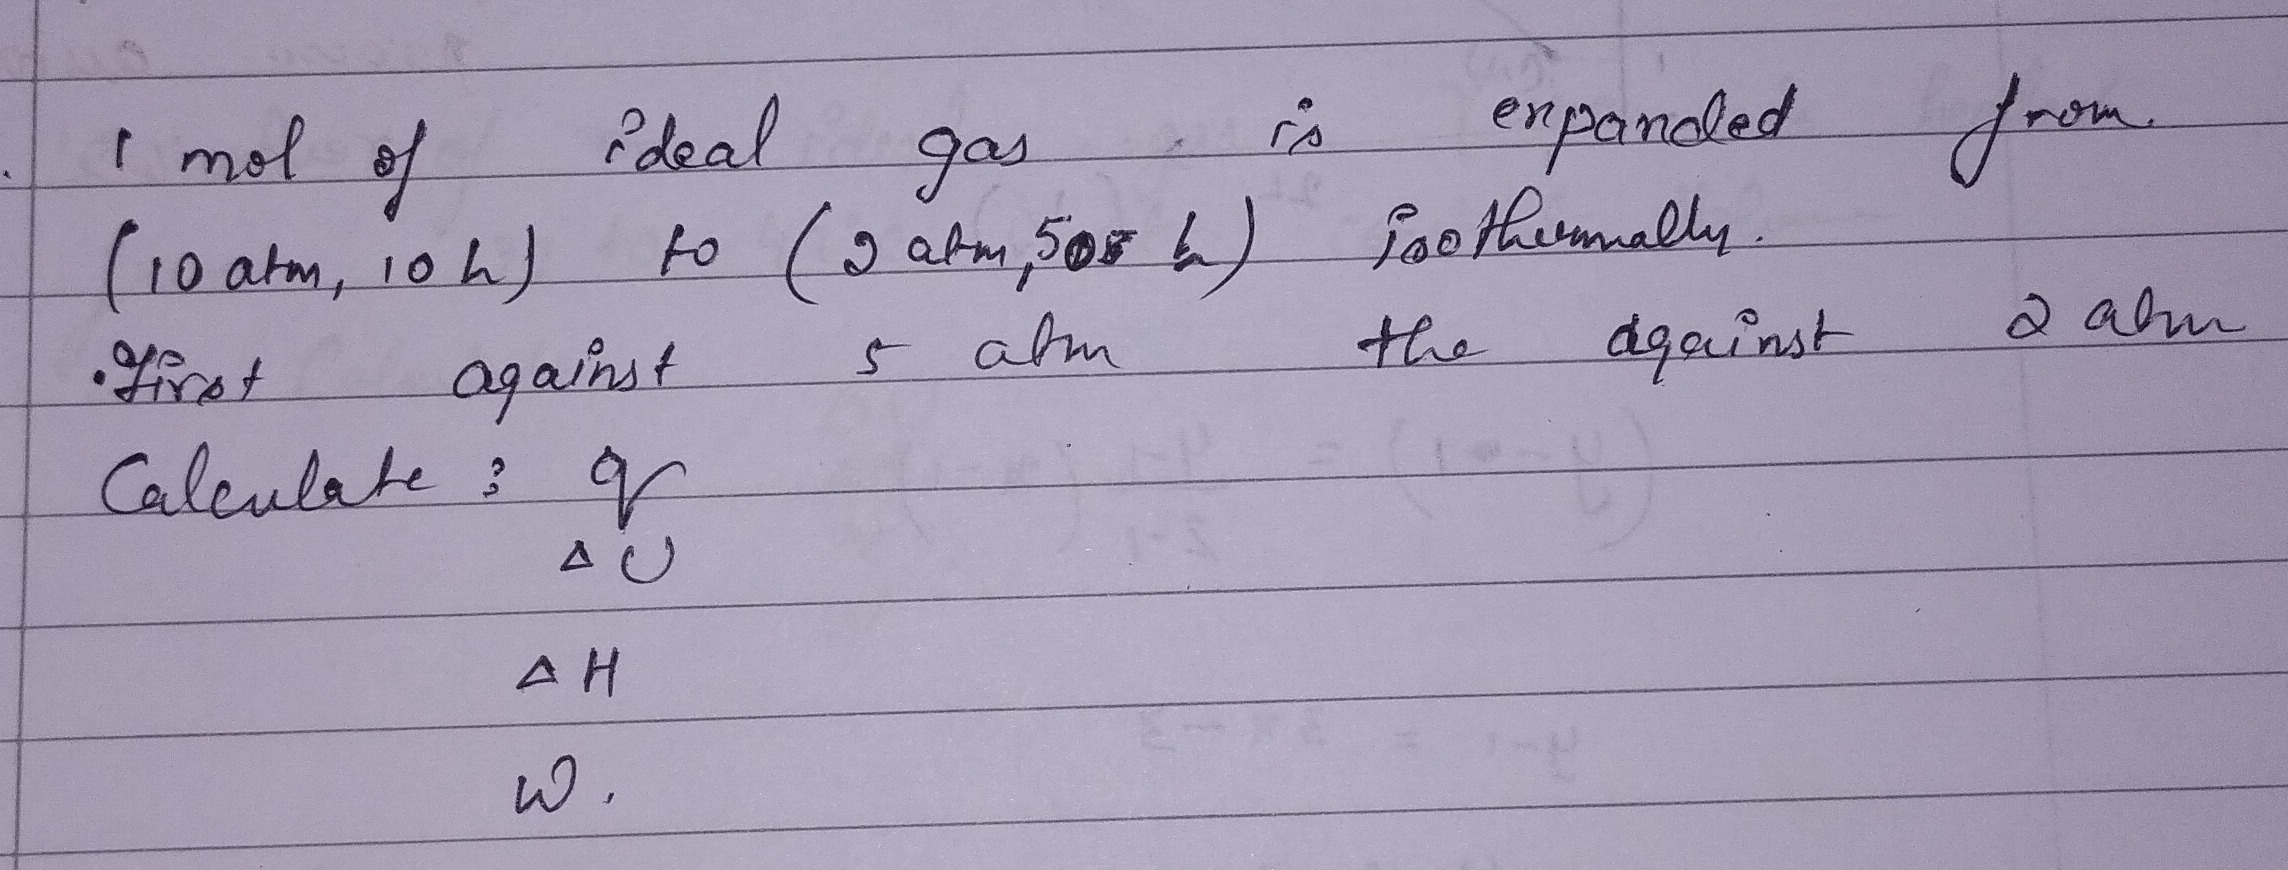 1 mol of ideal gas is expanded from
(10 atm, 10 L) to (2 atm, 50 L) isothermally.
first against 5 atm the against 2 atm
Calculate : q
ΔU
ΔH
W.